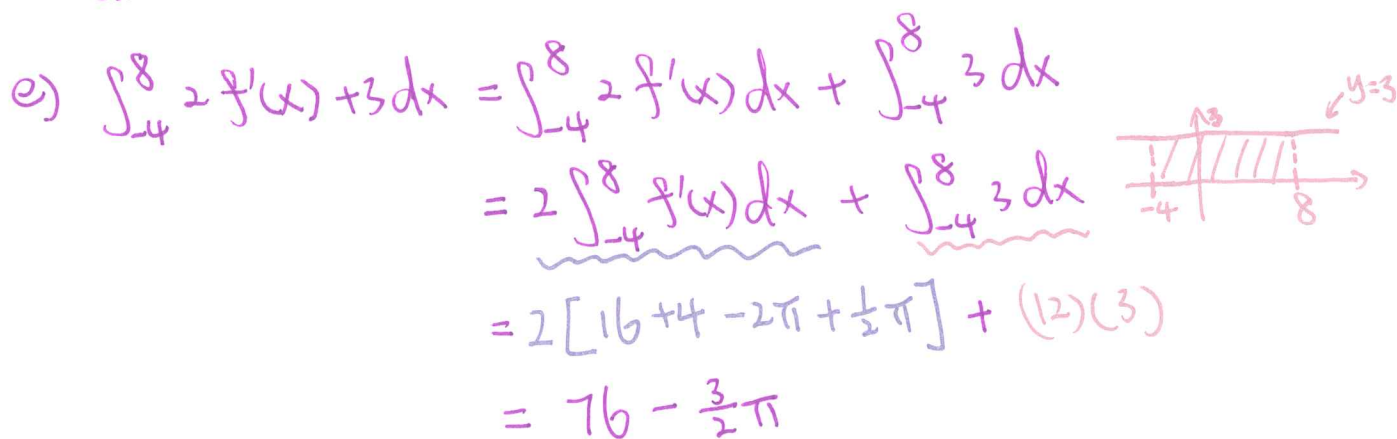 e) ∫_{-4}^{8} 2f'(x) + 3 dx = ∫_{-4}^{8} 2f'(x) dx + ∫_{-4}^{8} 3 dx
= 2∫_{-4}^{8} f'(x) dx + ∫_{-4}^{8} 3 dx
= 2[16 + 4 - 2π + ½π] + (12)(3)
= 76 - 3/2 π
y=3
3
-4
8